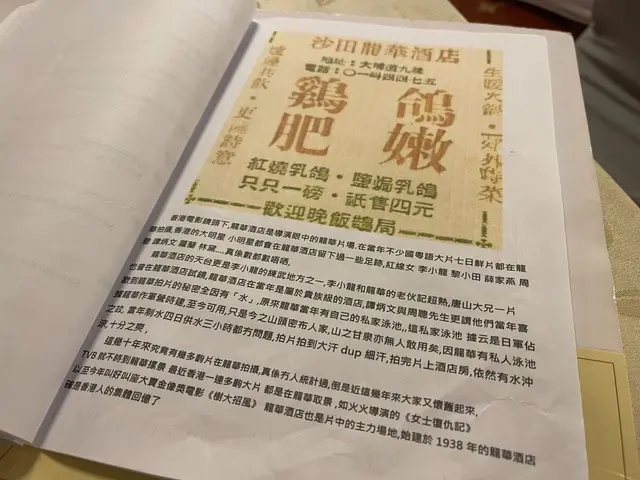 沙田龍華酒店
地址：大埔道九咪
電話：〇一叫四四七五
鷄肥
鴿嫩
紅燒乳鴿・鹽焗乳鴿
只只一磅・祇售四元
歡迎晚飯鵲局
香港電影鏡頭下,龍華酒店是導演眼中的龍華片場.在當年不少國粵語大片七日鮮片都在龍
華拍攝,香港的大明星 小明星都會在龍華酒店留下過一些足跡,紅線女 李小龍 黎小田 薛家燕 周
聰 譚炳文 羅蘭 林黛...真係數都數唔晒,
龍華酒店的天台更是李小龍的練武地方之一,李小龍和龍華的老伙記超熟,唐山大兄一片
也曾在龍華酒店試鏡,龍華酒店在當年是屬於貴族級的酒店,譚炳文與周聰先生更謂他們當年喜
歡到龍華拍片的秘密全因有「水」,原來龍華當年有自己的私家泳池,這私家泳池 據云是日軍佔
據龍華作軍營時建,至今可用,只是今之山頭密布人家,山之甘泉亦無人敢用矣,因龍華有私人泳池
之故,當年制水四日供水三小時都冇問題,拍片拍到大汗 dup 細汗,拍完片上酒店房,依然有水沖
涼,十分之爽,
這幾十年來究竟有幾多齣片在龍華拍攝,真係冇人統計過,倒是近這幾年來大家又懷舊起來,
TVB 就不時到龍華攝景 最近香港一連多齣大片 都是在龍華取景 ,如火火導演的《女士復仇記》
以至今年叫好叫座大賣金像獎電影《樹大招風》 龍華酒店也是片中的主力場地,始建於 1938 年的龍華酒店
確是香港人的集體回憶了